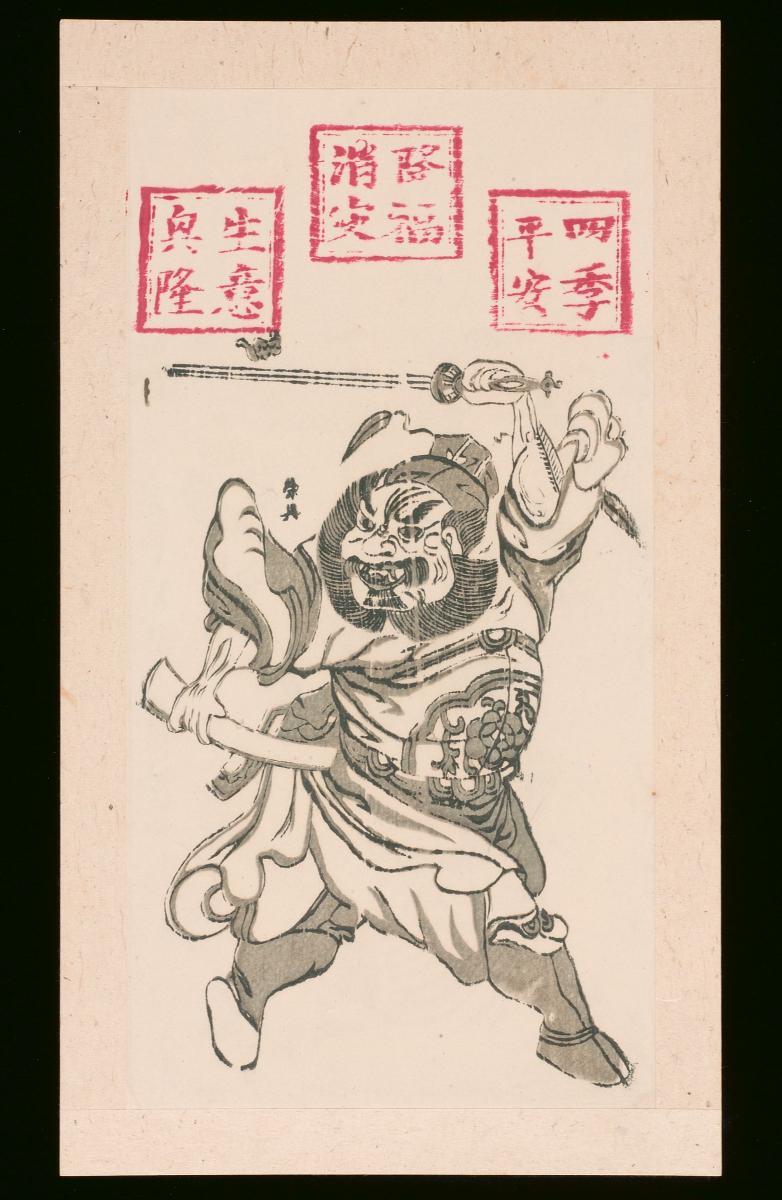 四季平安
降福消灾
生意興隆
榮興